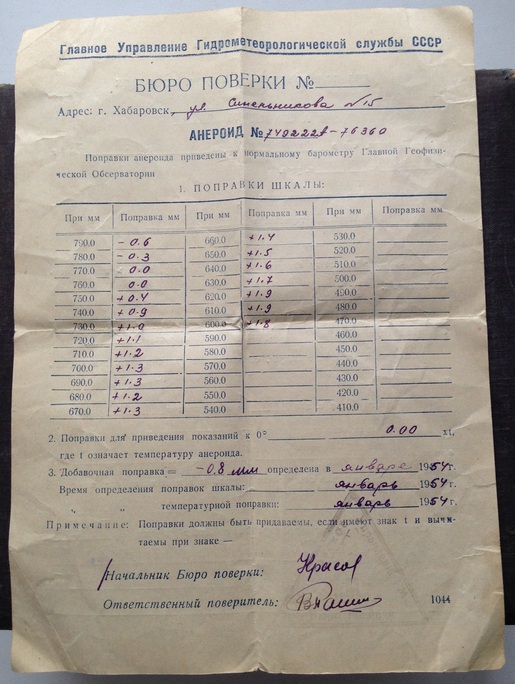 Главное Управление Гидрометеорологической службы СССР
БЮРО ПОВЕРКИ №
Адрес: г. Хабаровск, ул. Синельникова №15
АНЕРОИД № 76360
Поправки анероида приведены к нормальному барометру Главной Геофизи-
ческой Обсерватории
1. ПОПРАВКИ ШКАЛЫ:
При мм Поправка мм При мм Поправка мм При мм Поправка мм
790.0 -0.6 660.0 +1.4 530.0
780.0 -0.3 650.0 +1.5 520.0
770.0 0.0 640.0 +1.6 510.0
760.0 0.0 630.0 +1.7 500.0
750.0 +0.4 620.0 +1.9 490.0
740.0 +0.9 610.0 +1.9 480.0
730.0 +1.0 600.0 +1.8 470.0
720.0 +1.1 590.0 460.0
710.0 +1.2 580.0 450.0
700.0 +1.3 570.0 440.0
690.0 +1.3 560.0 430.0
680.0 +1.2 550.0 420.0
670.0 +1.3 540.0 410.0
2. Поправки для приведения показаний к 0° 0.00 xt,
где t означает температуру анероида.
3. Добавочная поправка = -0,8 мм определена в январе 1954 г.
Время определения поправок шкалы: январь 1954 г.
" " температурной поправки: январь 1954 г.
Примечание: Поправки должны быть придаваемы, если имеют знак t и вычи-
таемы при знаке —
Начальник Бюро поверки:
Ответственный поверитель: 1044